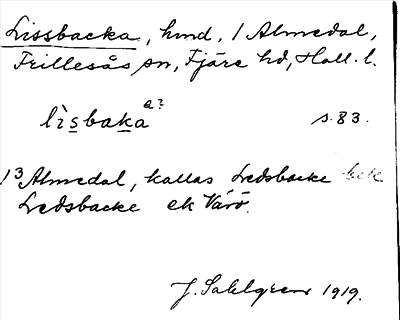 Lissbacka, hmd, 1 Almedal,
Frillesås sn, Fjäre hd, Hall. l.
a?
lìsbaka s. 83.
1³ Almedal, kallas Ledsbacke
Ledsbacke ek Värö.
J. Sahlgren 1919.